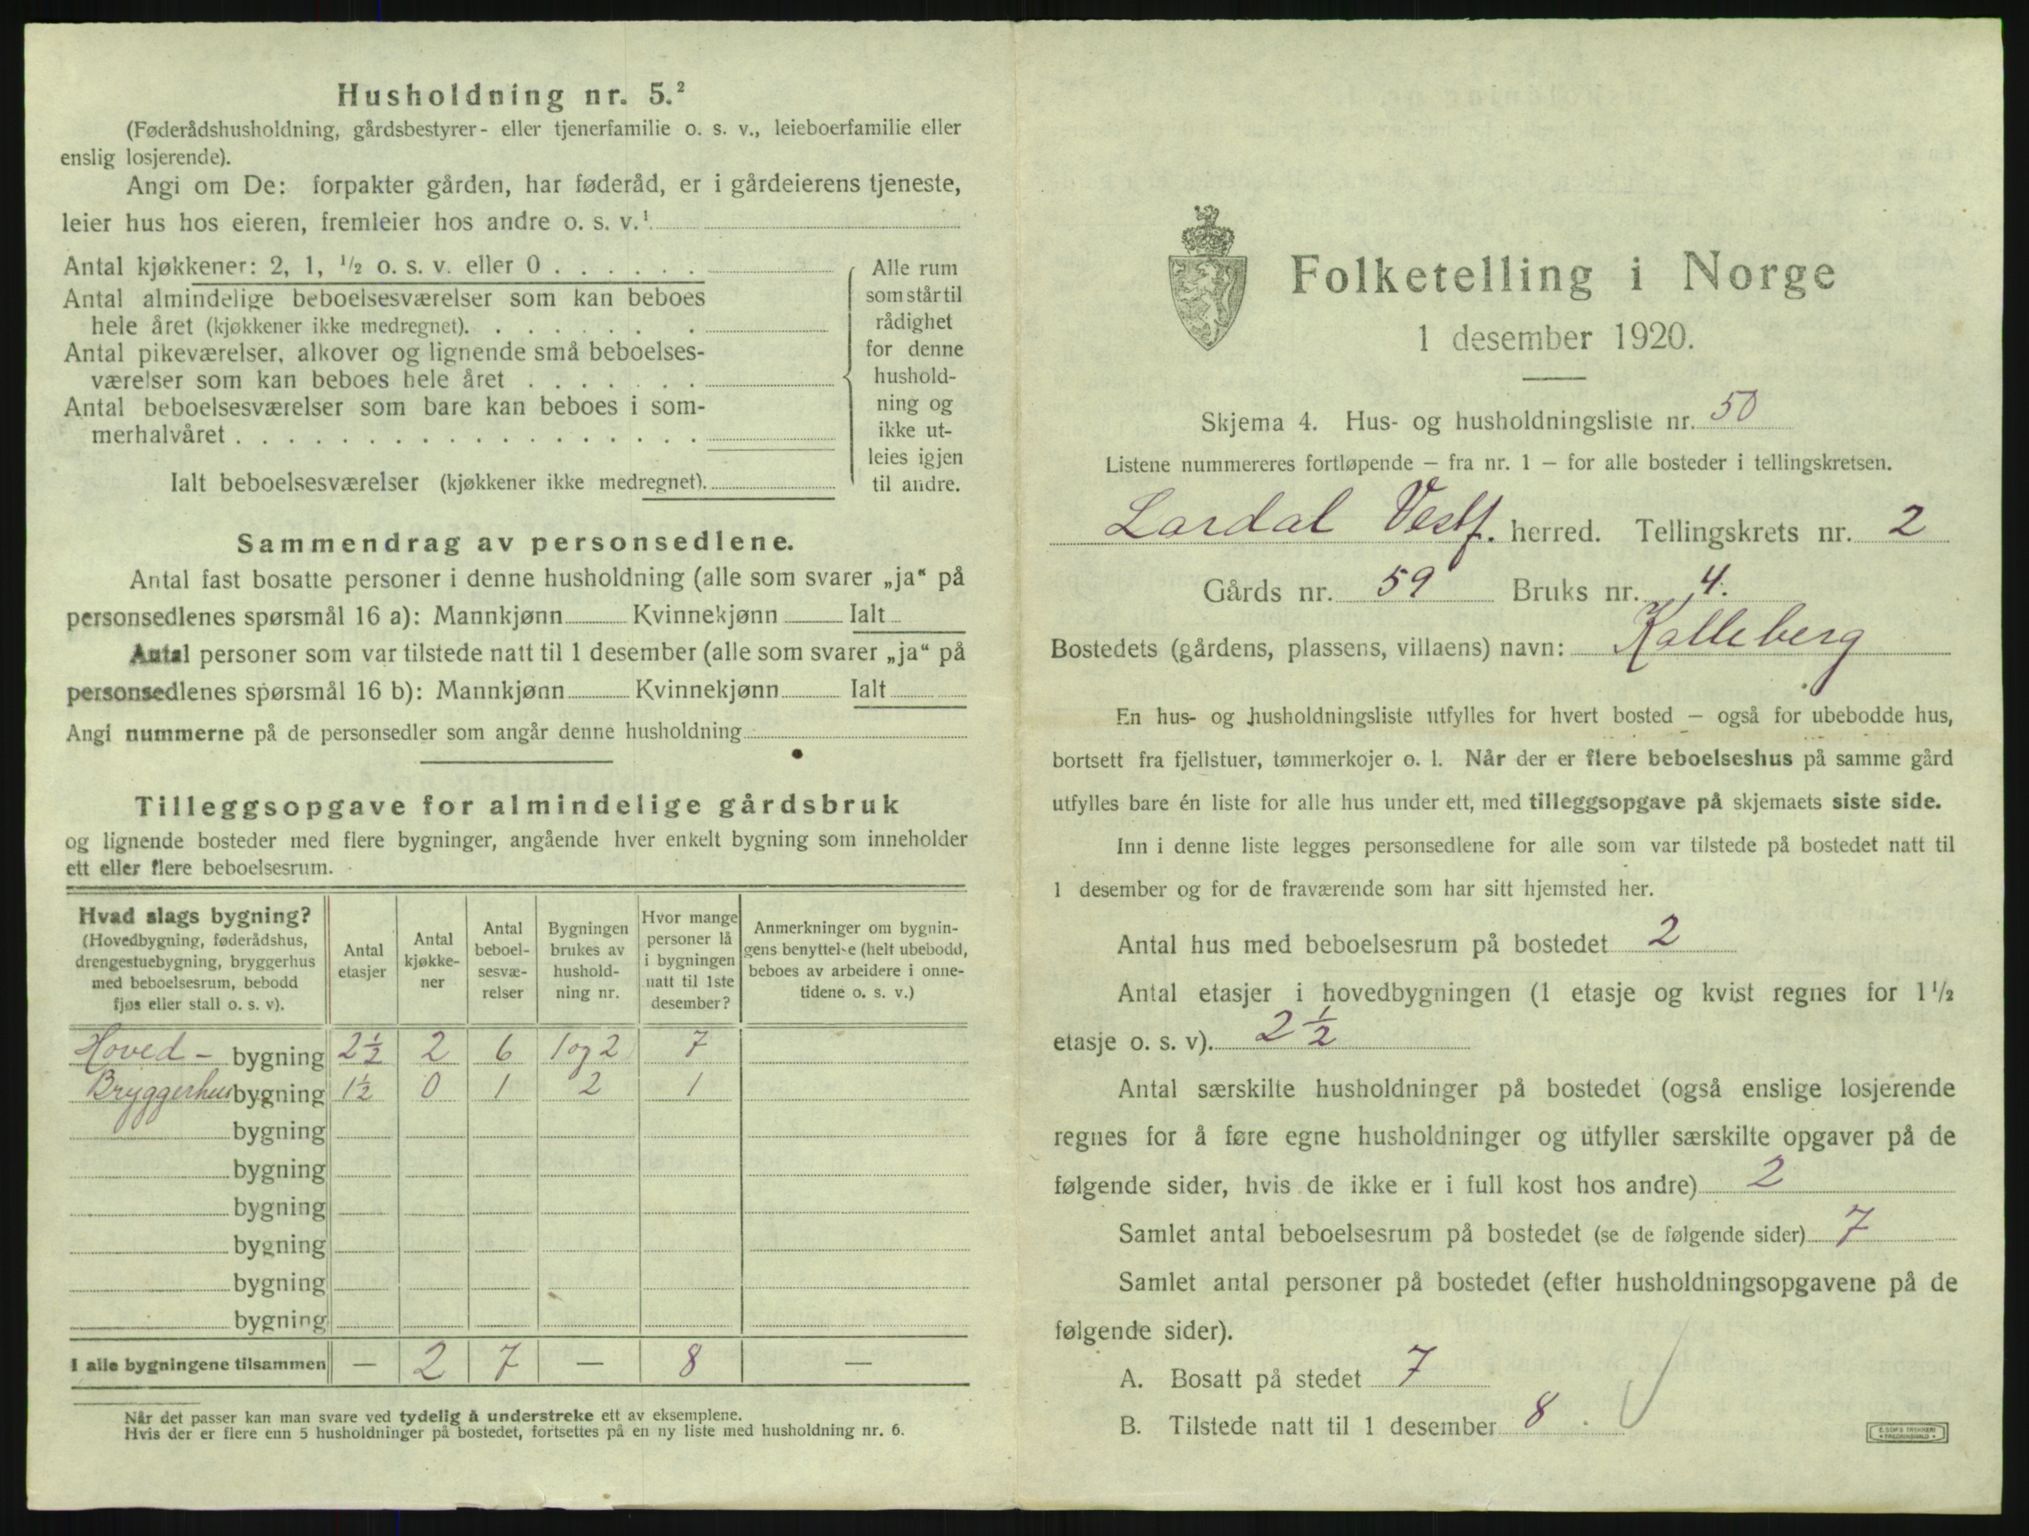 Husholdning nr. 5.²
(Føderådshusholdning, gårdsbestyrer- eller tjenerfamilie o. s. v., leieboerfamilie eller
enslig losjerende).
Angi om De: forpakter gården, har føderåd, er i gårdeierens tjeneste,
leier hus hos eieren, fremleier hos andre o. s. v.¹
Antal kjøkkener: 2, 1, ½ o. s. v. eller 0 . . . . . .
Antal almindelige beboelsesværelser som kan beboes
hele året (kjøkkener ikke medregnet). . . . . . . . .
Antal pikeværelser, alkover og lignende små beboelses-
værelser som kan beboes hele året . . . . . . .
Antal beboelsesværelser som bare kan beboes i som-
merhalvåret . . . . . . . . . . . . . . . . . .
Ialt beboelsesværelser (kjøkkener ikke medregnet).
Alle rum
som står til
rådighet
for denne
hushold-
ning og
ikke ut-
leies igjen
til andre.
Sammendrag av personsedlene.
Antal fast bosatte personer i denne husholdning (alle som svarer „ja“ på
personsedlenes spørsmål 16 a): Mannkjønn Kvinnekjønn Ialt
Antal personer som var tilstede natt til 1 desember (alle som svarer „ja“ på
personsedlenes spørsmål 16 b): Mannkjønn Kvinnekjønn Ialt
Angi nummerne på de personsedler som angår denne husholdning
Tilleggsopgave for almindelige gårdsbruk
og lignende bosteder med flere bygninger, angående hver enkelt bygning som inneholder
ett eller flere beboelsesrum.
Hvad slags bygning?
(Hovedbygning, føderådshus,
drengestuebygning, bryggerhus
med beboelsesrum, bebodd
fjøs eller stall o. s. v).
Antal
etasjer
Antal
kjøkke-
ner
Antal
beboel-
sesvæ-
relser
Bygningen
brukes av
hushold-
ning nr.
Hvor mange
personer lå
i bygningen
natt til 1ste
desember?
Anmerkninger om bygnin-
gens benyttelse (helt ubebodd,
beboes av arbeidere i onne-
tidene o. s. v.)
Hoved- bygning 2½ 2 6 1 og 2 7
Bryggerhus bygning 1½ 0 1 2 1
bygning
bygning
bygning
bygning
bygning
bygning
I alle bygningene tilsammen — 2 7 — 8 —
Når det passer kan man svare ved tydelig å understreke ett av eksemplene.
Hvis der er flere enn 5 husholdninger på bostedet, fortsettes på en ny liste med husholdning nr. 6.
Folketelling i Norge
1 desember 1920.
Skjema 4. Hus- og husholdningsliste nr. 50
Listene nummereres fortløpende – fra nr. 1 – for alle bosteder i tellingskretsen.
Lardal Vestf. herred. Tellingskrets nr. 2
Gårds nr. 59 Bruks nr. 4.
Bostedets (gårdens, plassens, villaens) navn: Kalleberg
En hus- og husholdningsliste utfylles for hvert bosted – også for ubebodde hus,
bortsett fra fjellstuer, tømmerkojer o. l. Når der er flere beboelseshus på samme gård
utfylles bare én liste for alle hus under ett, med tilleggsopgave på skjemaets siste side.
Inn i denne liste legges personsedlene for alle som var tilstede på bostedet natt til
1 desember og for de fraværende som har sitt hjemsted her.
Antal hus med beboelsesrum på bostedet 2
Antal etasjer i hovedbygningen (1 etasje og kvist regnes for 1½
etasje o. s. v). 2½
Antal særskilte husholdninger på bostedet (også enslige losjerende
regnes for å føre egne husholdninger og utfyller særskilte opgaver på de
følgende sider, hvis de ikke er i full kost hos andre) 2
Samlet antal beboelsesrum på bostedet (se de følgende sider) 7
Samlet antal personer på bostedet (efter husholdningsopgavene på de
følgende sider).
A. Bosatt på stedet 7
B. Tilstede natt til 1 desember 8